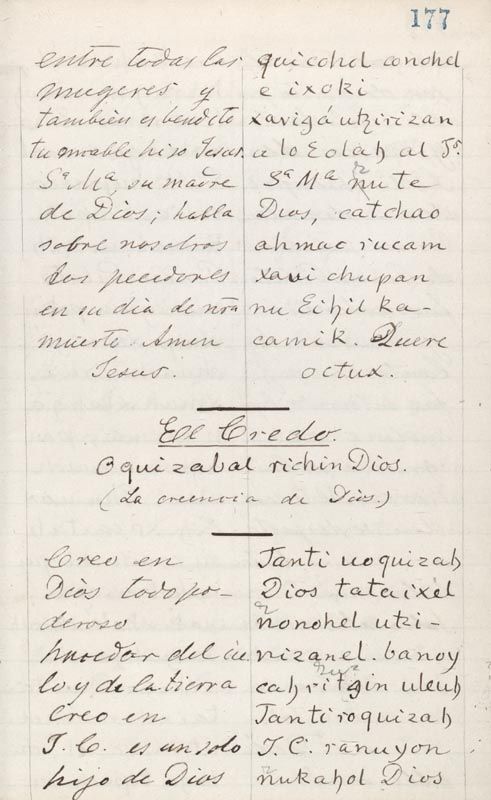 177
entre todas las quicohol conohel
mugeres y e ixoki
también es bendito xavigá utzirizan
tu amable hijo Jesus. a lo Eolah al Js.
Sª Mª, su madre Sª Mª nute
de Dios; habla Dios, catchao
sobre nosotros ahmac rucam
los pecedores xavi chupan
en su dia de nra nu Eihil ka-
muerte. Amen camik. Quere
Jesus. octux.
El Credo.
Oquizabal richin Dios.
(La creencia de Dios.)
Creo en Tanti uoquizah
Dios todo po- Dios tataixel
deroso nonohel utzi-
hacedor del cie nizanel. banoy
lo y de la tierra cah ritgin uleuh
Creo en Tantiroquizah
J. C. es un solo J. C. ranuyon
hijo de Dios nukahol Dios